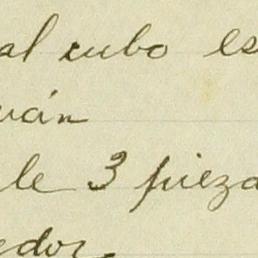 al cubo es
uán
le 3 pieza
edor